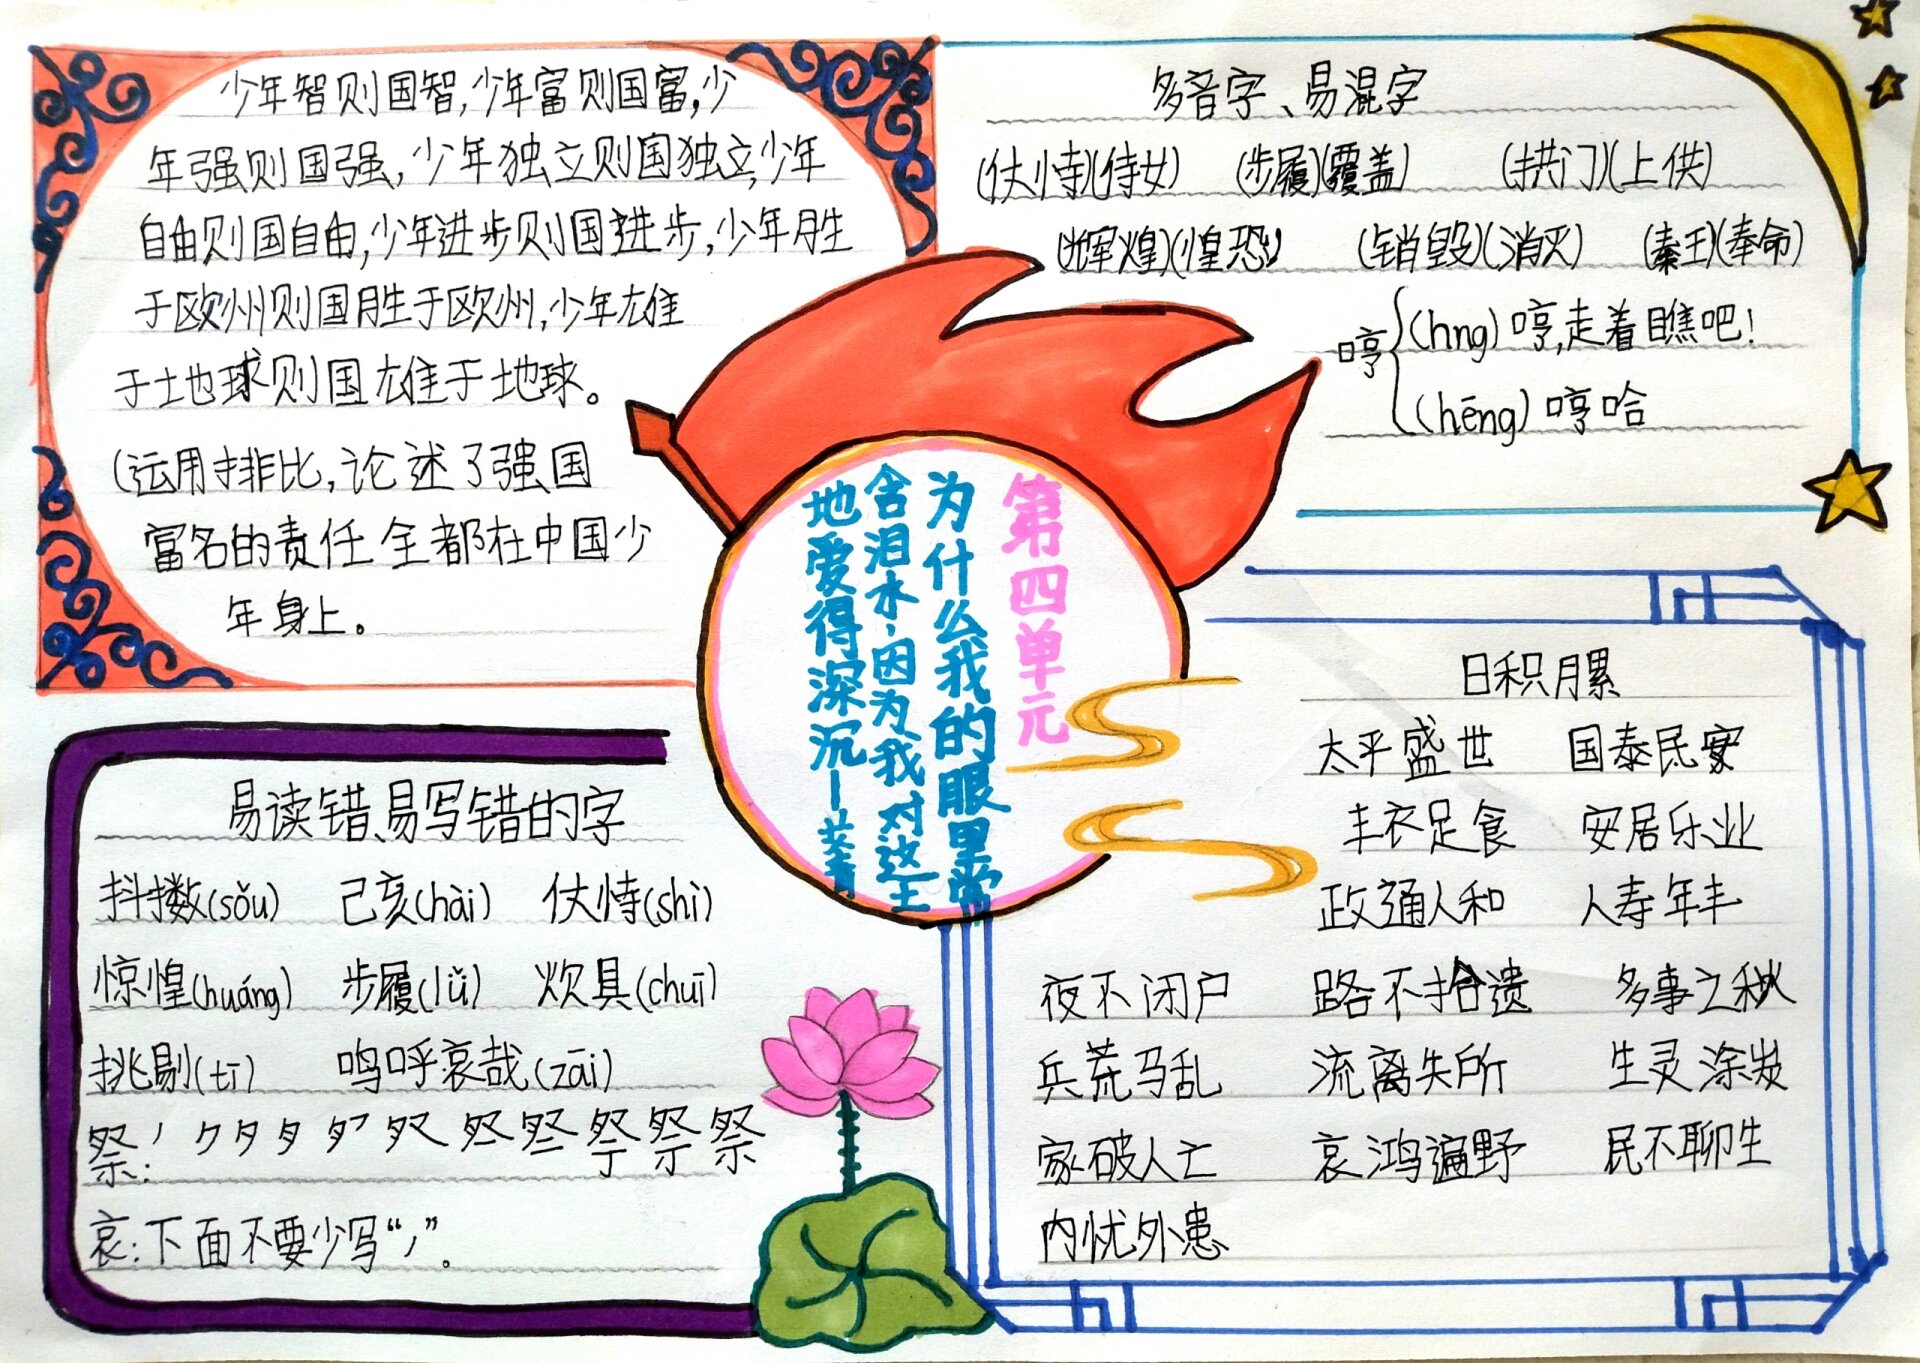 少年智则国智,少年富则国富,少
年强则国强,少年独立则国独立,少年
自由则国自由,少年进步则国进步,少年胜
于欧州则国胜于欧州,少年雄
于地球则国雄于地球。
(运用排比,论述了强国
富名的责任全都在中国少
年身上。
多音字、易混字
(仗恃)(侍女) (步履)(覆盖) (拱门)(上供)
(辉煌)(惶恐) (销毁)(消灭) (秦王)(奉命)
哼
(hng) 哼,走着瞧吧!
(hēng) 哼哈
第四单元
为什么我的眼里常
含泪水,因为我对这土
地爱得深沉—艾青
易读错、易写错的字
抖擞(sǒu) 己亥(hài) 仗恃(shì)
惊惶(huáng) 步履(lǚ) 炊具(chuī)
挑剔(tī) 鸣呼哀哉(zāi)
祭:
哀:下面不要少写“丿”。
日积月累
太平盛世 国泰民安
丰衣足食 安居乐业
政通人和 人寿年丰
夜不闭户 路不拾遗 多事之秋
兵荒马乱 流离失所 生灵涂炭
家破人亡 哀鸿遍野 民不聊生
内忧外患